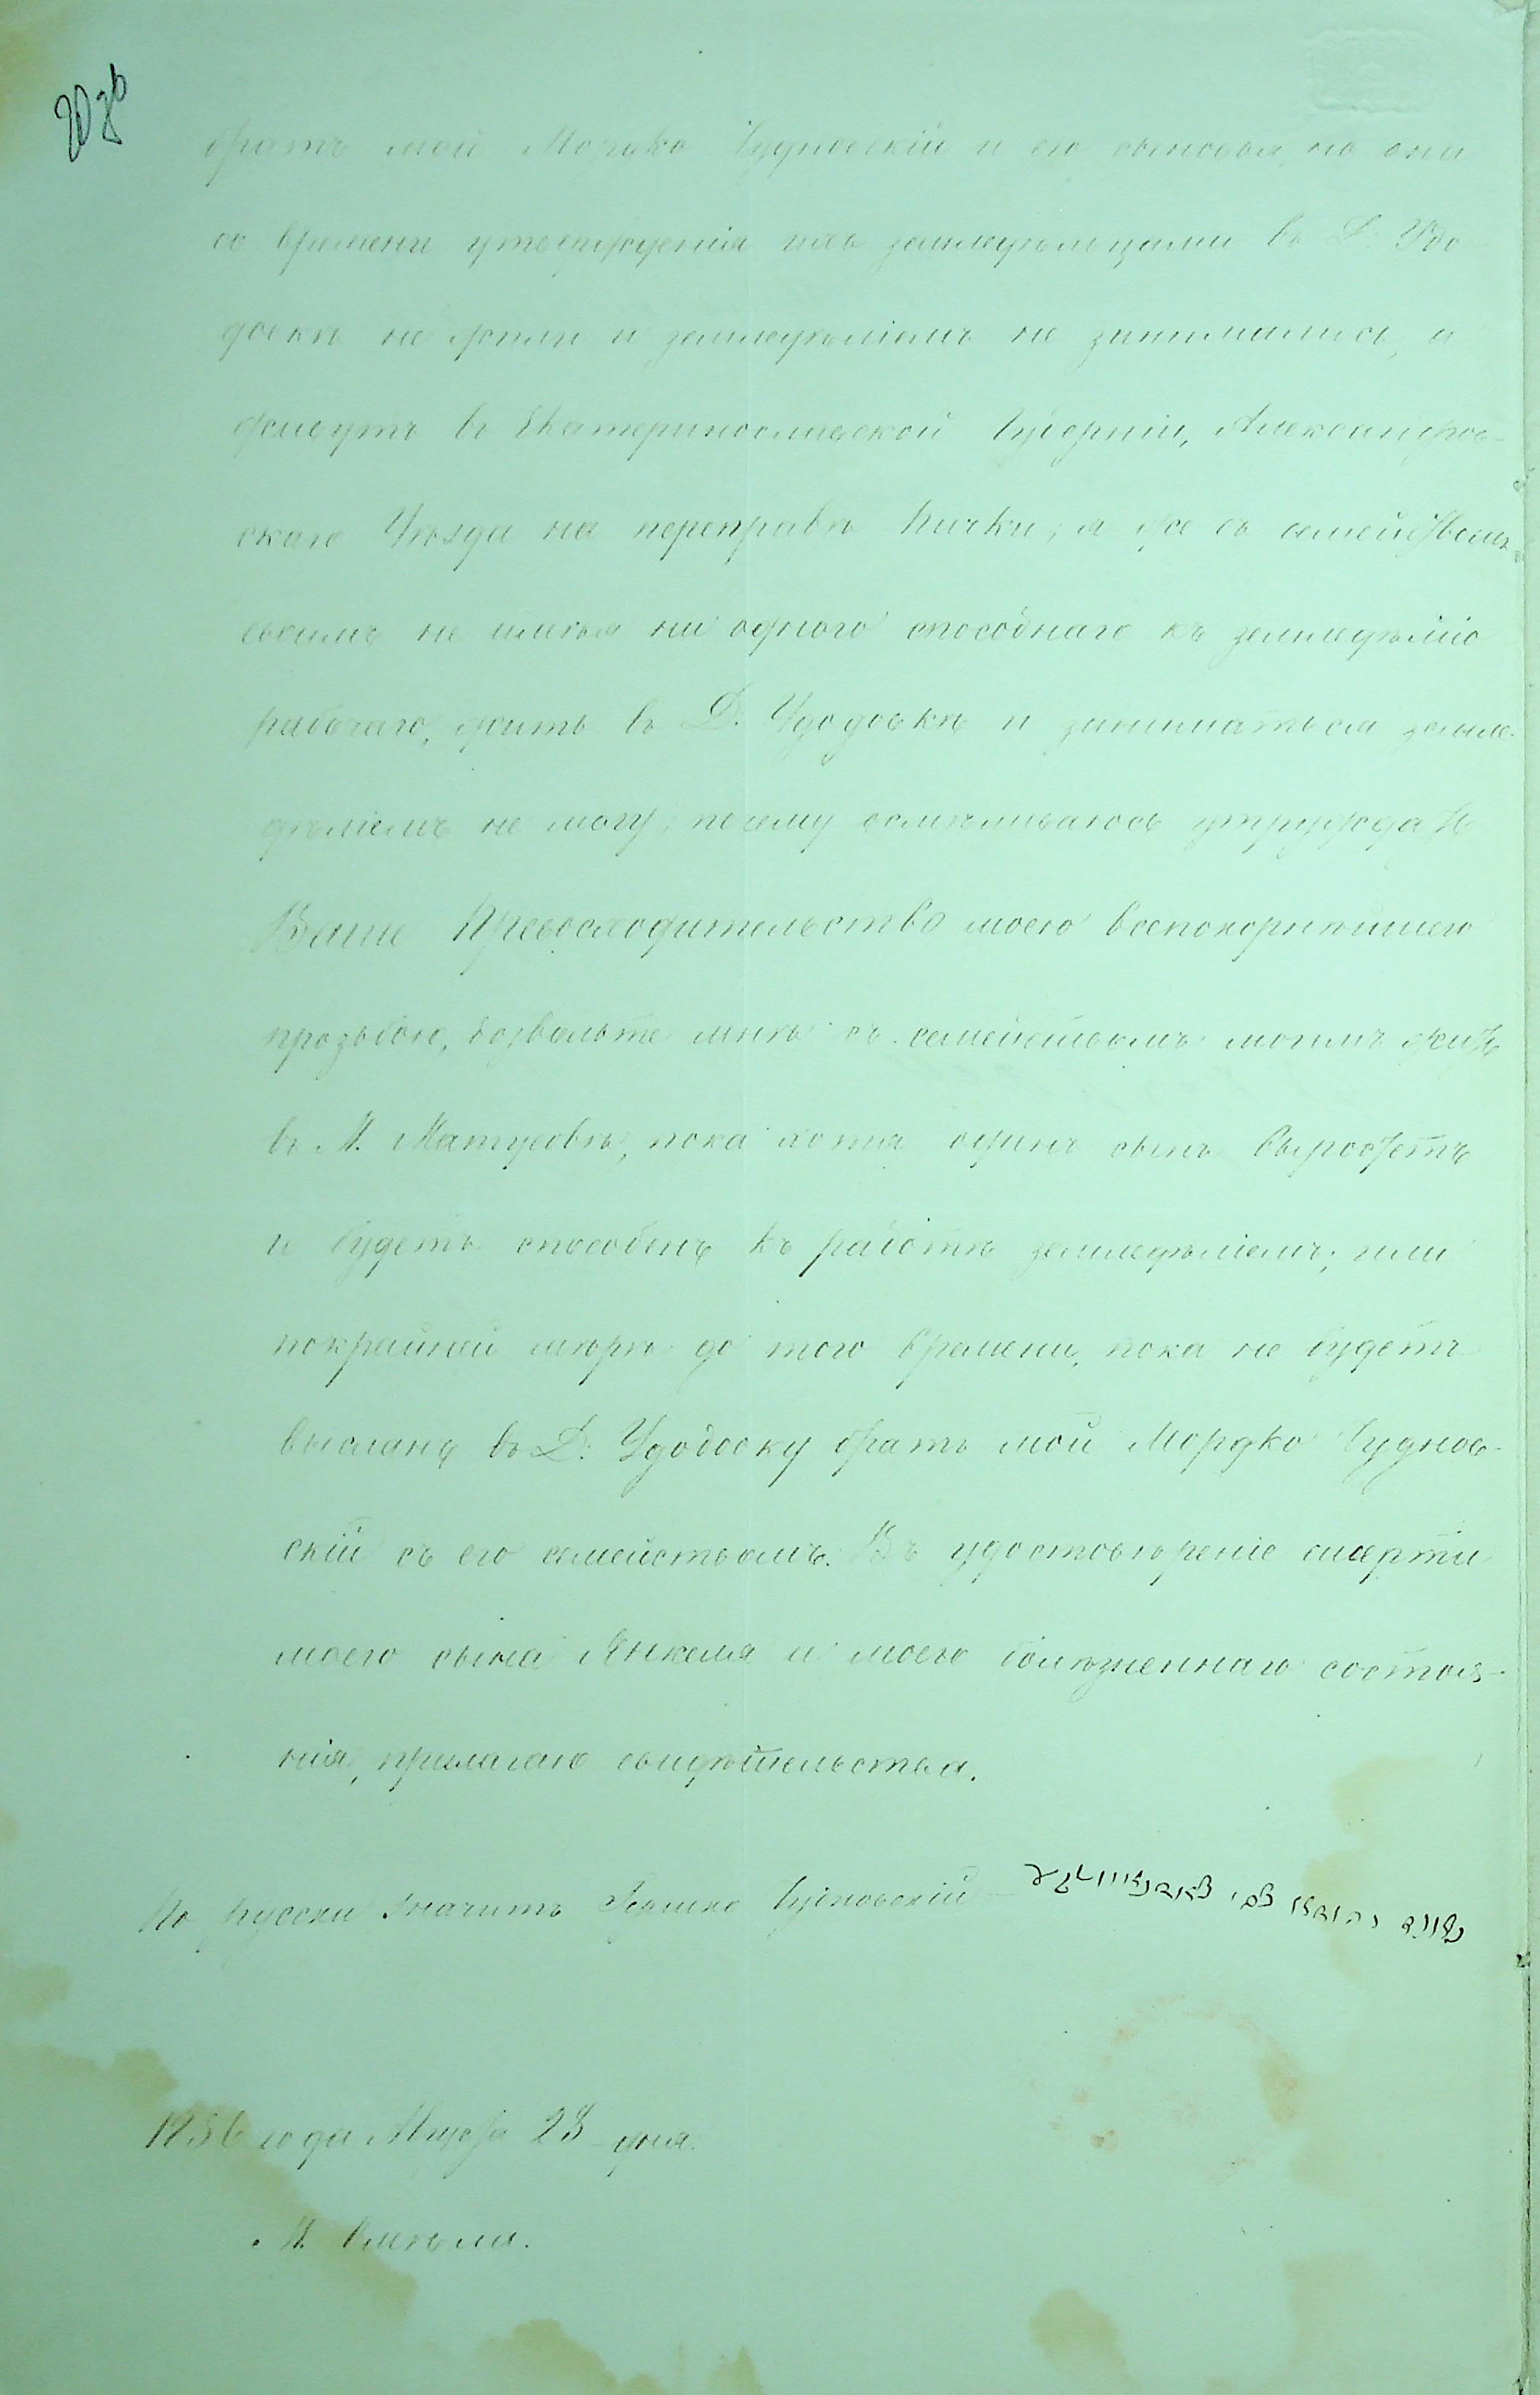 братъ мой Мордко Чудновскій и его сыновья, но они
со времени утвержденія ихъ земледѣльцами въ Д. Удо
довкѣ не жили и земледѣліемъ не занимались, а
живутъ въ Екатеринославской Губерніи, Александров-
скаго Уѣзда на переправѣ Кички; я же съ семействомъ
своимъ не имѣя ни одного способнаго къ земледѣлію
рабочаго, жить въ Д. Удодовкѣ и заниматься земле-
дѣліемъ не могу, почему осмѣливаюсь утруждать
Ваше Превосходительство моею всепокорнѣйшею
прозьбою, дозвольте мнѣ съ семействомъ моимъ жить
въ М. Матусовѣ, пока хотя одинъ сынъ выростетъ
и будетъ способенъ къ работѣ земледѣліемъ; или
покрайней мѣрѣ до того времени, пока не будетъ
высланъ въ Д. Удодовку братъ мой Мордко Чуднов-
скій съ его семействомъ. Въ удостовѣреніе смерти
моего сына Янкеля и моего болѣзненнаго состоя-
нія, прилагаю свидѣтельства.
По русски значитъ Чудновскій
1856 года Августа 23 дня.
М. Смѣла.